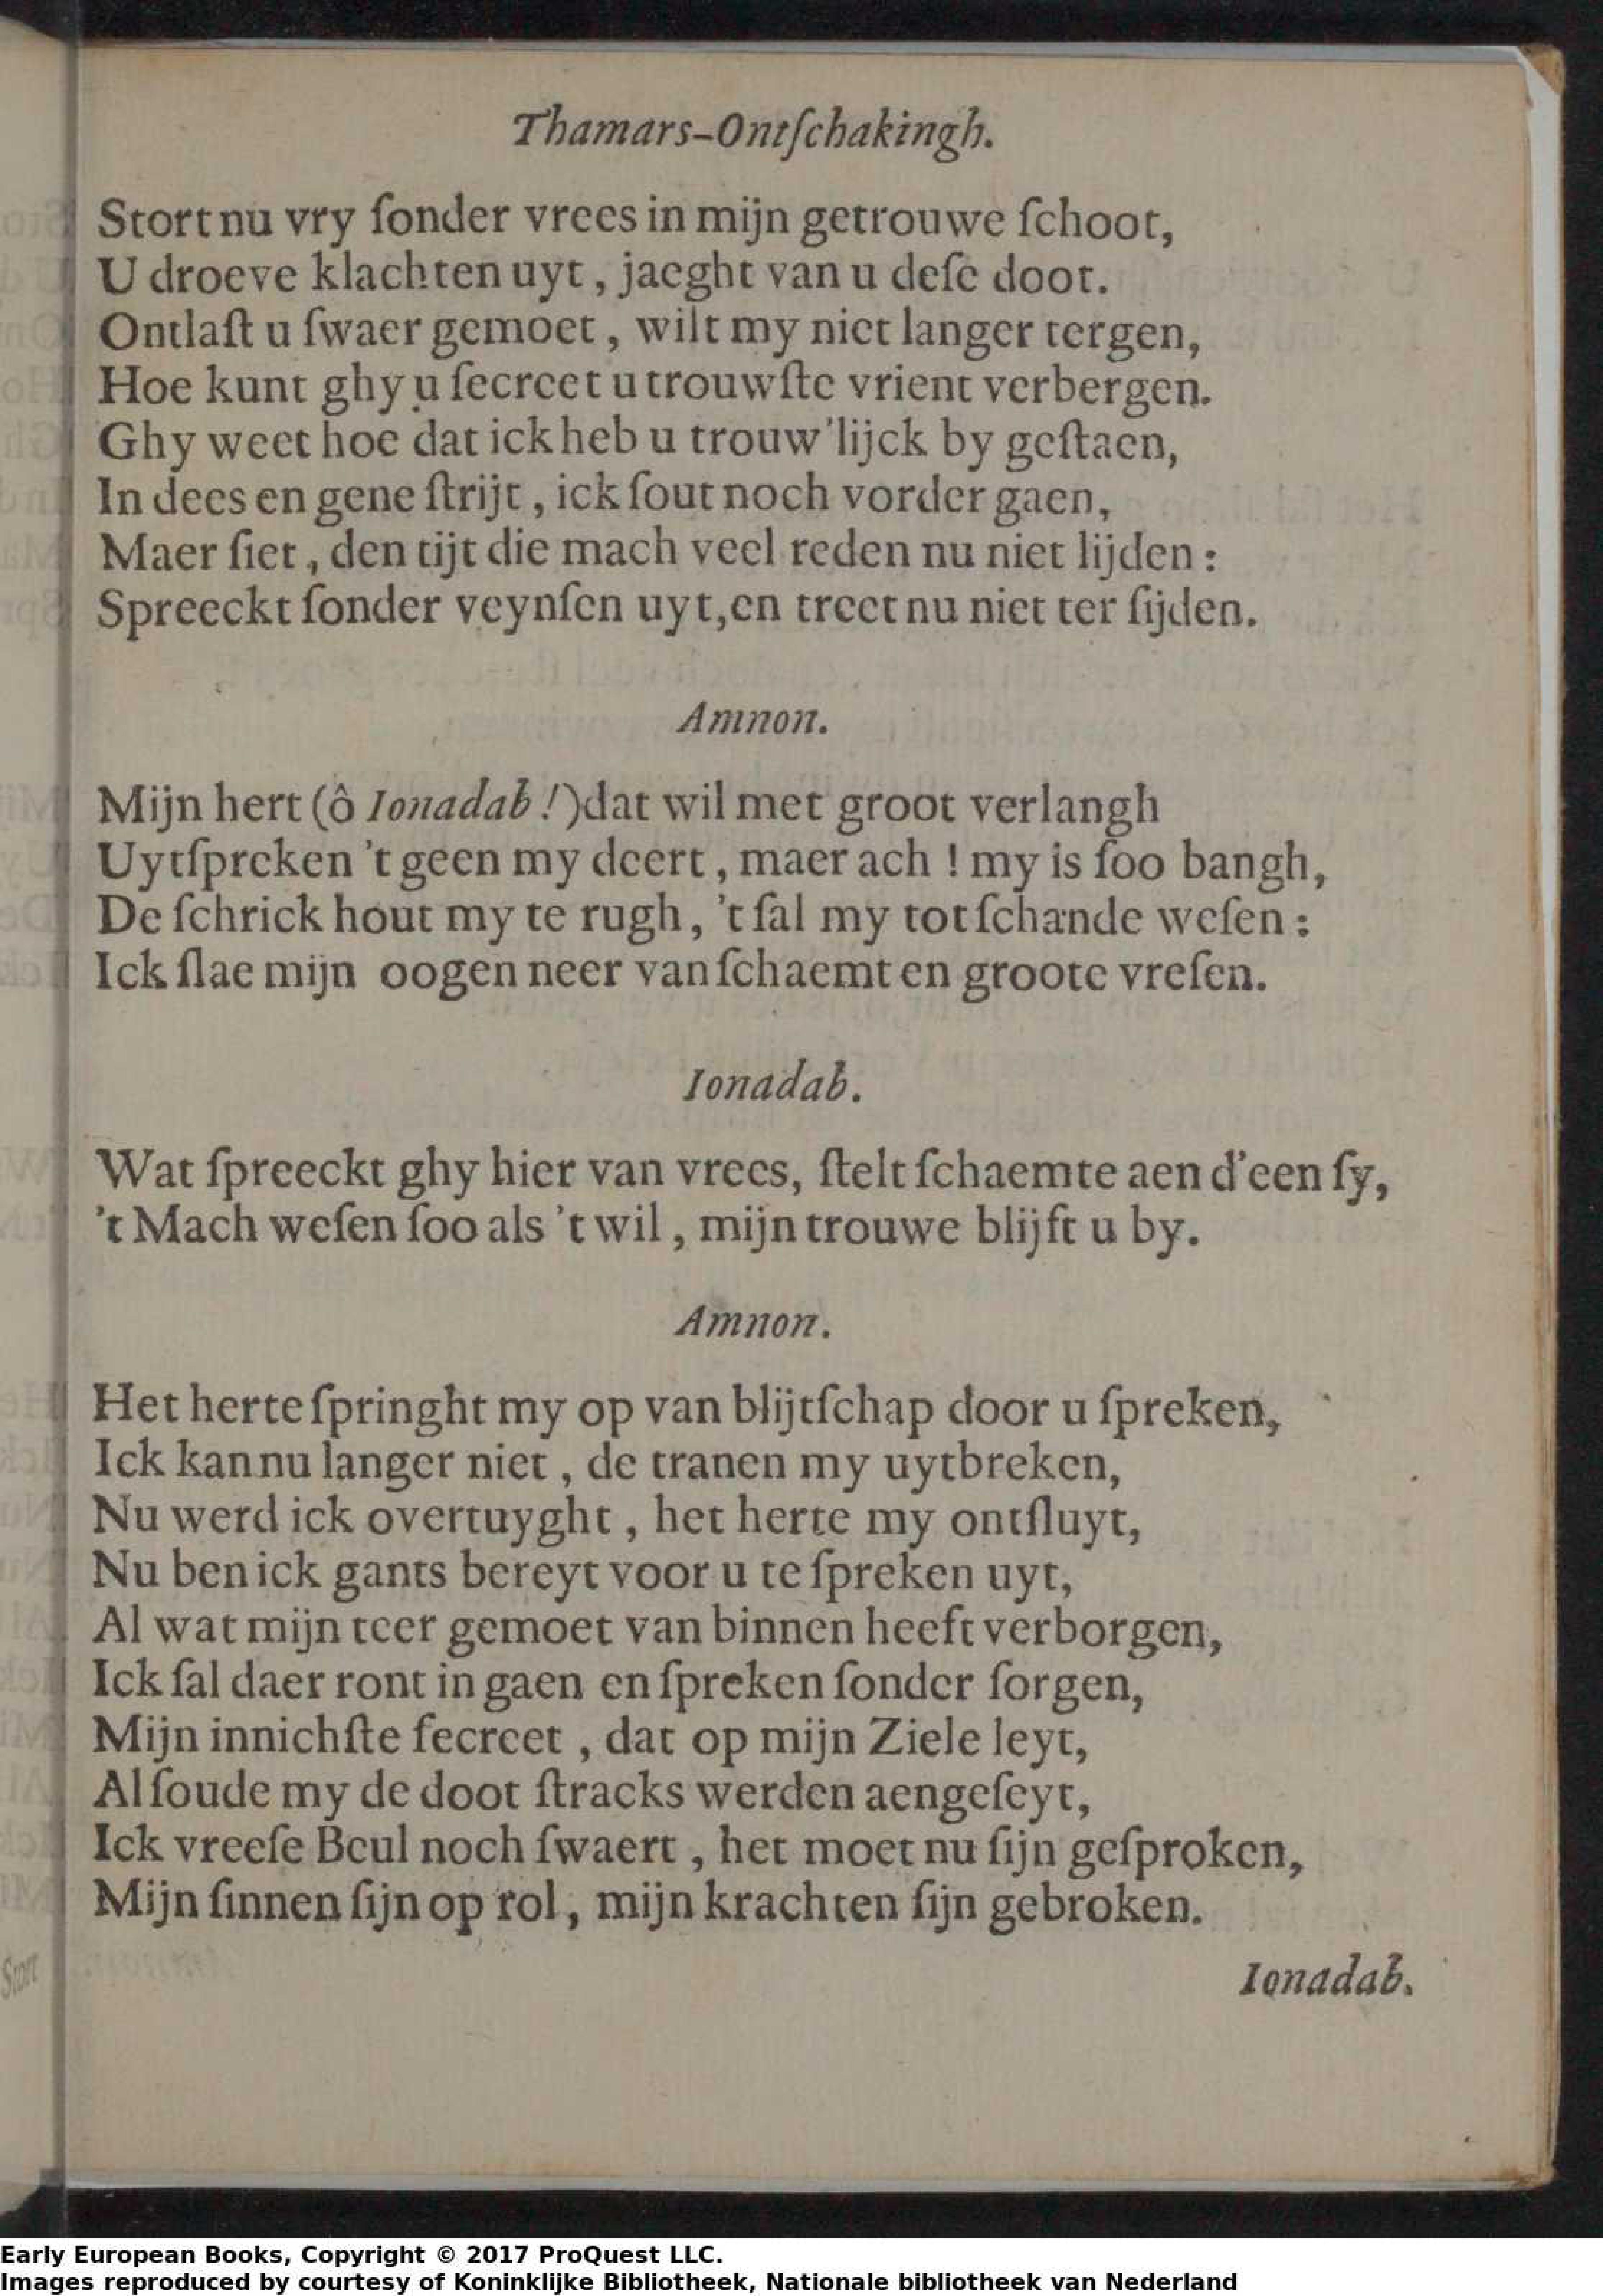 Thamars-Ontſchakingh.
Stort nu vry ſonder vrees in mijn getrouwe ſchoot,
U droeve klachten uyt, jaeght van u deſe doot.
Ontlaſt u ſwaer gemoet, wilt my niet langer tergen,
Hoe kunt ghy u ſecreet u trouwſte vrient verbergen.
Ghy weet hoe dat ick heb u trouw'lijck by geſtaen,
In dees en gene ſtrijt, ick ſout noch vorder gaen,
Maer ſiet, den tijt die mach veel reden nu niet lijden:
Spreeckt ſonder veynſen uyt, en treet nu niet ter ſijden.
Amnon.
Mijn hert (ô Ionadab!) dat wil met groot verlangh
Uytſpreken 't geen my deert, maer ach! my is ſoo bangh,
De ſchrick hout my te rugh, 't ſal my tot ſchande weſen:
Ick ſlae mijn oogen neer van ſchaemt en groote vreſen.
Ionadab.
Wat ſpreeckt ghy hier van vrees, ſtelt ſchaemte aen d'een ſy,
't Mach weſen ſoo als 't wil, mijn trouwe blijft u by.
Amnon.
Het herte ſpringht my op van blijtſchap door u ſpreken,
Ick kan nu langer niet, de tranen my uytbreken,
Nu werd ick overtuyght, het herte my ontſluyt,
Nu ben ick gants bereyt voor u te ſpreken uyt,
Al wat mijn teer gemoet van binnen heeft verborgen,
Ick ſal daer ront in gaen en ſpreken ſonder ſorgen,
Mijn innichſte ſecreet, dat op mijn Ziele leyt,
Al ſoude my de doot ſtracks werden aengeſeyt,
Ick vreeſe Beul noch ſwaert, het moet nu ſijn geſproken,
Mijn ſinnen ſijn op rol, mijn krachten ſijn gebroken.
Ionadab.
Stort
Early European Books, Copyright © 2017 ProQuest LLC.
Images reproduced by courtesy of Koninklijke Bibliotheek, Nationale bibliotheek van Nederland